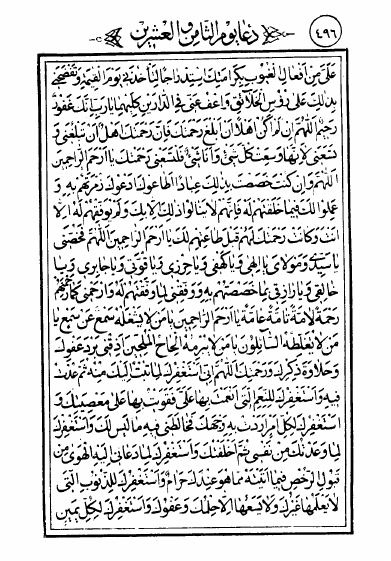 ٤٩٦
دعا يوم الثامن والعشرين
على من افعال العيوب بكرامتك يا سيدي اخذني يوم القيمة وتفضحني
بذلك على رؤس الخلائق واعف عني في الدارين كليهما يا رب فانك غفور
رحيم اللهم ان لم اكن اهلا ان ابلغ رحمتك فان رحمتك اهل ان تبلغني و
تسعني لانها وسعت كل شئ وانا شئ فلتسعني رحمتك يا ارحم الراحمين
اللهم وان كنت خصصت بذلك عبادا اطاعوك فيما امرتهم به و
عملوا لك فيما خلقتهم له فانهم لم ينالوا ذلك الا بك ولم يوفقهم له الا
انت وكانت رحمتك لهم قبل طاعتهم لك يا ارحم الراحمين اللهم فخصني
يا سيدي ومولاي يا الهي ويا كهفي ويا حرزي ويا قوتي ويا جابري ويا
خالقي ويا رازقي بما خصصتهم به ووفقني لما وفقتهم له وارحمني كما رحمتهم
رحمة لامة تامة عامة يا ارحم الراحمين يا من لا يشغله سمع عن سمع يا
من لا يغلطه السائلون يا من لا يبرمه الحاح الملحين اذقني برد عفوك
وحلاوة ذكرك ورحمتك اللهم اني استغفرك لما تبت اليك منه ثم عدت
فيه واستغفرك للنعم التي انعمت بها على فقويت بها على معصيتك و
استغفرك لكل امر اردت به وجهك فخالطني فيه ما ليس لك واستغفرك
لما وعدتك من نفسي ثم اخلفتك واستغفرك لما دعاني اليه الهوى من
قبول الرخص فيما اتيته مما هو عندك حرام واستغفرك للذنوب التي
لا يعلمها غيرك ولا يسعها الا حلمك وعفوك واستغفرك لكل يمين